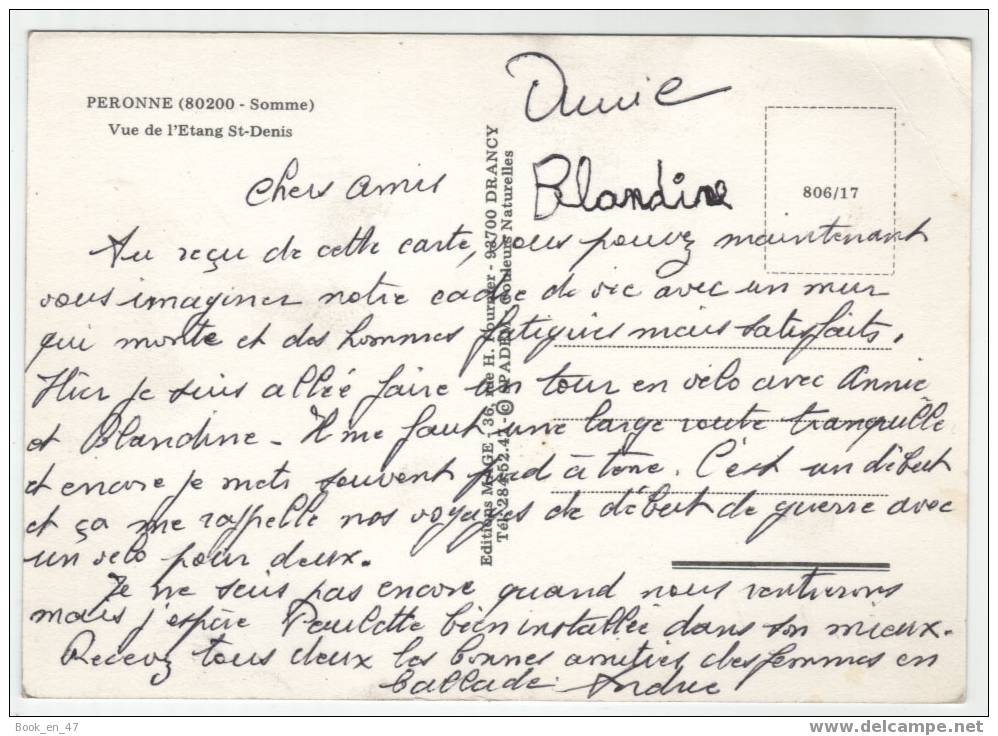 PERONNE (80200 - Somme)
Vue de l'Etang St-Denis
Annie
Blandine
806/17
Editions MAGE - 36, rue H. Fournier - 93700 DRANCY
Tél. 284.52.41 - © SPADEM Couleurs Naturelles
Chers amis
Au reçu de cette carte, vous pouvez maintenant
vous imaginer notre cadre de vie avec un mur
qui monte et des hommes fatigués mais satisfaits.
Hier je suis allée faire un tour en vélo avec Annie
et Blandine - Il me faut une large route tranquille
et encore je mets souvent pied à terre. C'est un début
et ça me rappelle nos voyages de début de guerre avec
un vélo pour deux.
Je ne sais pas encore quand nous rentrerons
mais j'espère Paulette bien installée dans son mieux.
Recevez tous deux les bonnes amitiés des femmes en
ballade. Andrée
Book_en_47
www.delcampe.net